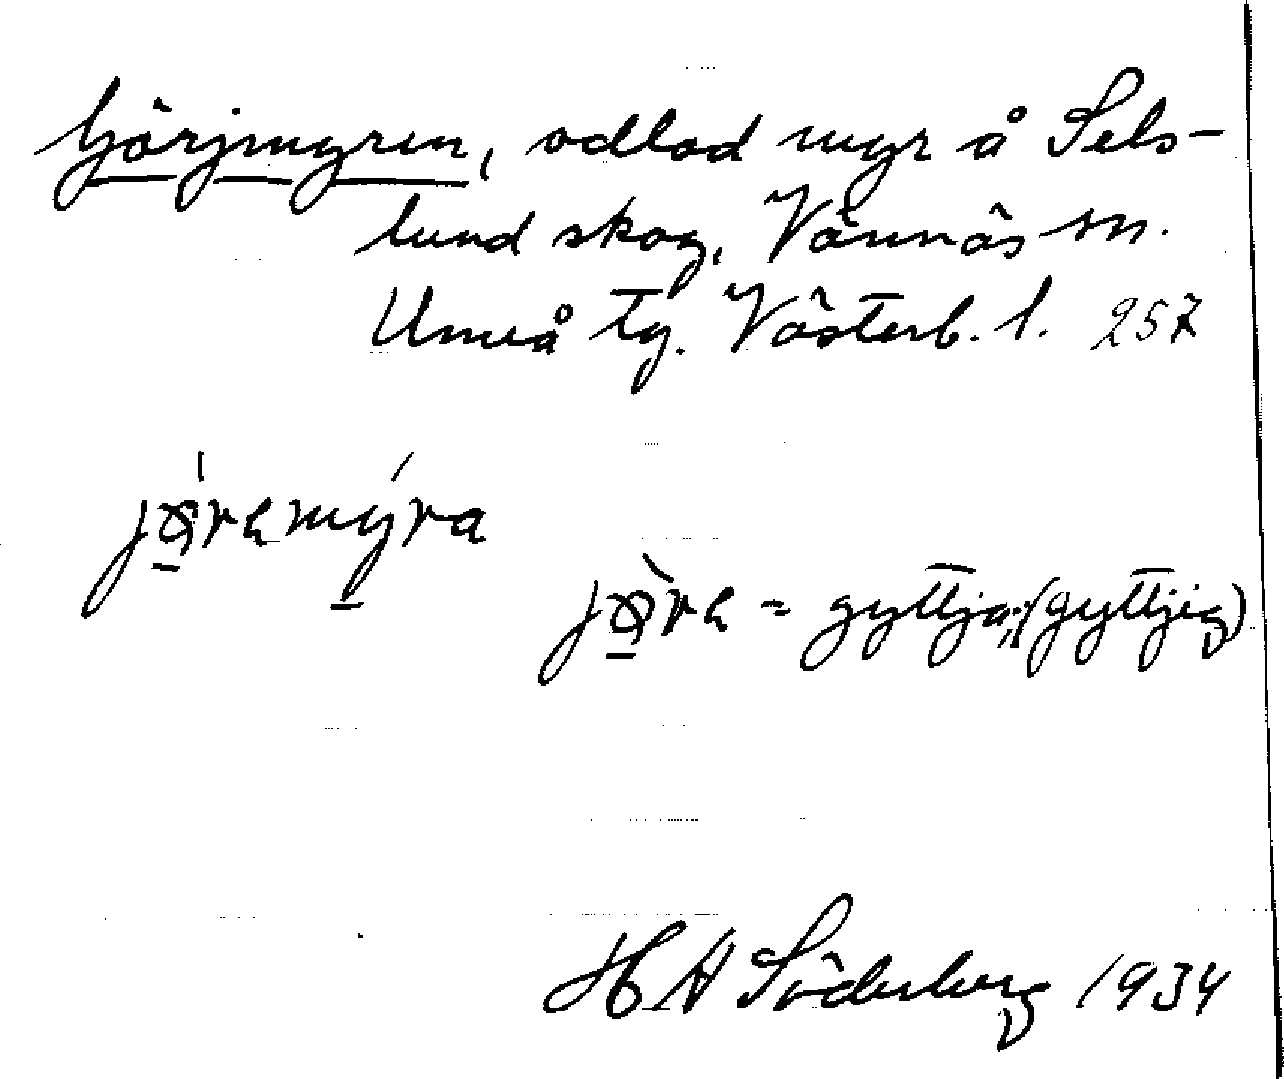 Görjmyren, odlad myr å Sels-
lund skog, Vännäs sn.
Umeå tg. Västerb. l. 257
= gyttja; (gyttjig)
H A Söderberg 1934